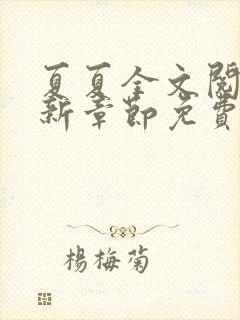 夏夏全文閱
新章節免費
楊梅菊